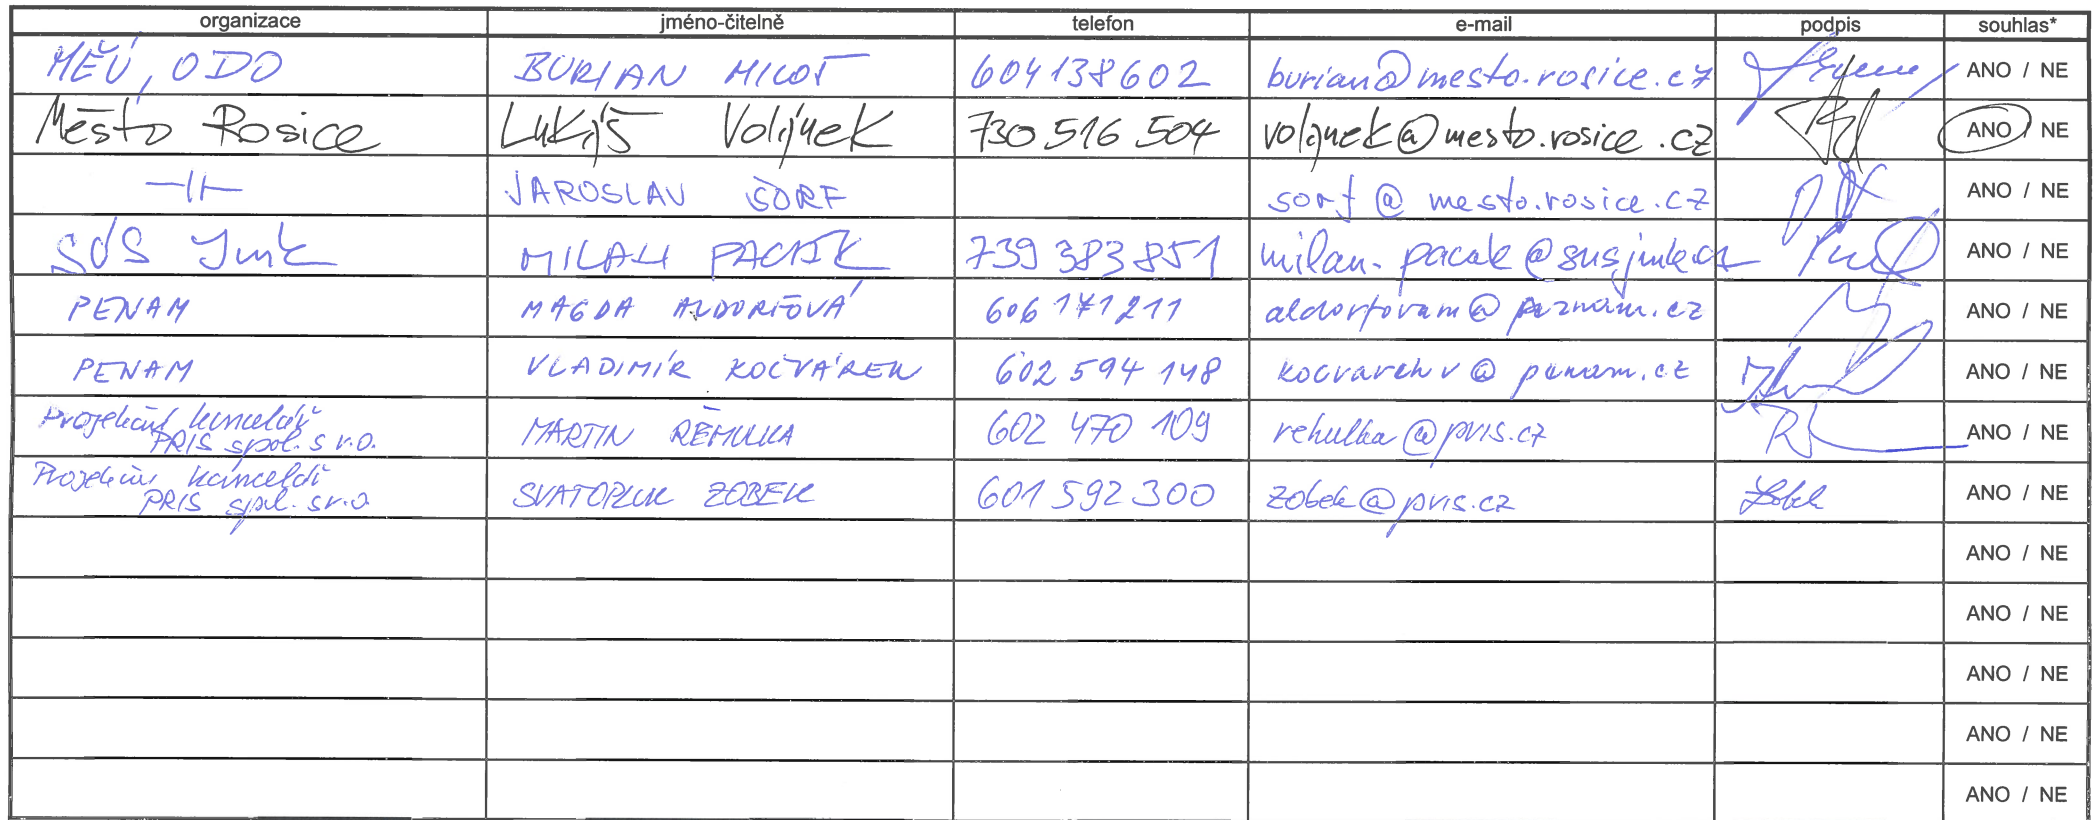 organizace jméno-čitelně telefon e-mail podpis souhlas*
MĚÚ, ODO BURIAN MILOŠ 604138602 burian@mesto.rosice.cz ANO / NE
Město Rosice Lukáš Volánek 730 516 504 volanek@mesto.rosice.cz ANO / NE
—||— JAROSLAV ŠORF sorf@mesto.rosice.cz ANO / NE
SÚS JmK MILAN PACÁK 739 383 851 milan.pacak@susjmk.cz ANO / NE
PENAM MAGDA ALDORFOVÁ 606 171 211 ANO / NE
PENAM VLADIMÍR 602 594 148 ANO / NE
Projekční kancelář
PRIS spol. s r.o. MARTIN ŘEHULKA 602 470 109 rehulka@pris.cz ANO / NE
Projekční kancelář
PRIS spol. s r.o. SVATOPLUK ZOBEK 601 592 300 zobek@pris.cz Zobek ANO / NE
ANO / NE
ANO / NE
ANO / NE
ANO / NE
ANO / NE